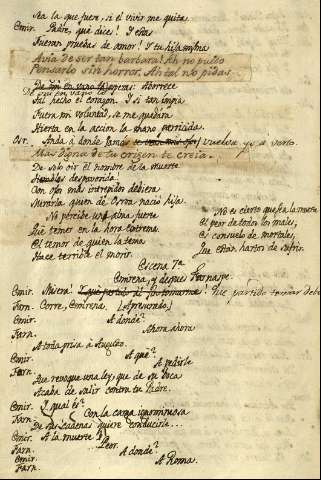 Sea la que fuere, si el vivir me quita.
Emir. Padre, qué dices! Y estas
fueran pruebas de amor! Y tu hija misma
había de ser tan bárbara! Ah no puedo
Pensarlo sin horror. Ah tal no pidas.
De mí en vano lo esperas: Aborrece
De mí en vano lo
Tal hecho el corazon. Y si tan impía
fuera mi voluntad, se me quedara
Hierta en la accion la mano parricida.
Osr. Anda a donde jamas vuelva yo a verte.
Mas digna de tu origen te creía.
De solo oir el nombre de la muerte
desmayada
Con ojos mas intrépidos debiera
Mirarla quien de Osroa nació hija.
No percibe una alma fuerte
Que temer en la hora extrema.
El temor de quien la tema
Hace terrible el morir.
No es cierto que sea la muerte
El peor de todos los males;
Es consuelo de mortales,
Que están hartos de sufrir.
Escena 7ª
Emirena, y despues Farnaspe.
Emir. Misera! Qué partido tomar debo
Farn. Corre, Emirena. (Apresurado)
Emir. A donde?
Farn. Ahora ahora
A toda prisa à Augusto.
Emir. A qué?
Farn. A pedirle
Que revoque una ley, que de su boca
Acaba de salir contra tu Padre.
Emir. Y qual és?
Farn. Con la carga ignominiosa
De sus cadenas quiere conducirle...
Emir. A la muerte?
Farn. Peor.
Emir. A donde?
Farn. A Roma.